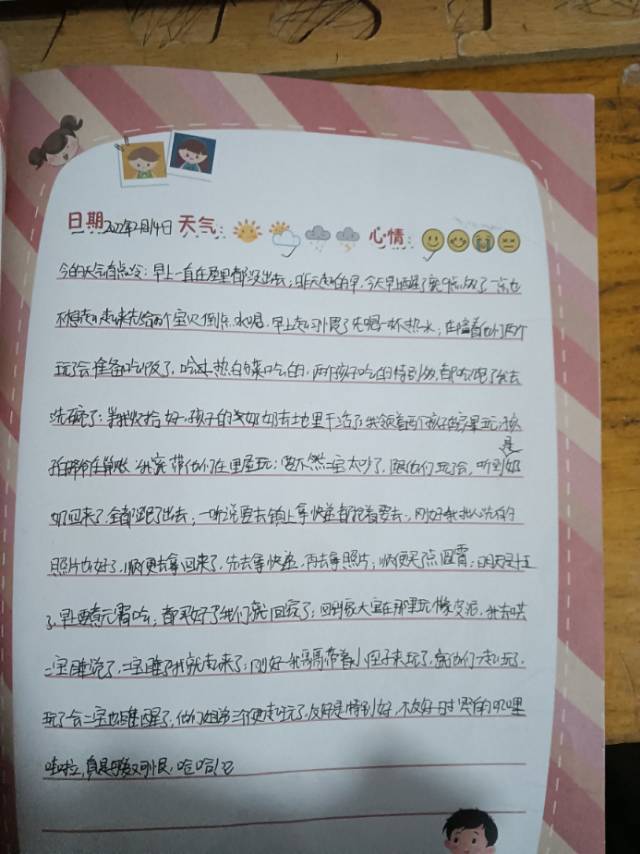 日期:2022年2月14日 天气: 心情:
今的天气有点冷;早上一直在屋里都没出去;昨天起的早,今天早醒了第9点,做了一点也
不想起;起床先给两个宝贝倒点水喝,早上起习惯了先喝一杯热水;在陪着他们两个
玩了会准备吃饭了,白菜吃的,两个孩子吃的特别多,都吃饱了我去
洗碗了;等我收拾好,孩子的奶奶去地里干活了,我领着两个孩子在房里玩,孩
我带他们在里屋玩;要不然二宝太吵了,跟他们玩会,听到是奶
奶回来了,全都跑了出去;一听说要去镇上拿快递都抢着要去,刚好我们洗的
照片也好了,顺便去拿回来了,先去拿快递,再去拿照片;顺便买了点元宵;明天是十五
了,早要煮元宵吃;都买好了我们就回家了;回到家大宝在那里玩橡皮泥,我去哄
二宝睡觉了,二宝睡了我就起来了;刚好我哥哥带着小侄子来玩了,就他们一起玩了,
玩了会二宝也睡醒了,他们姐弟三个一起玩了,友好是特别好,不友好时哭的叽里
哇啦,真是可爱又可恨,哈哈!